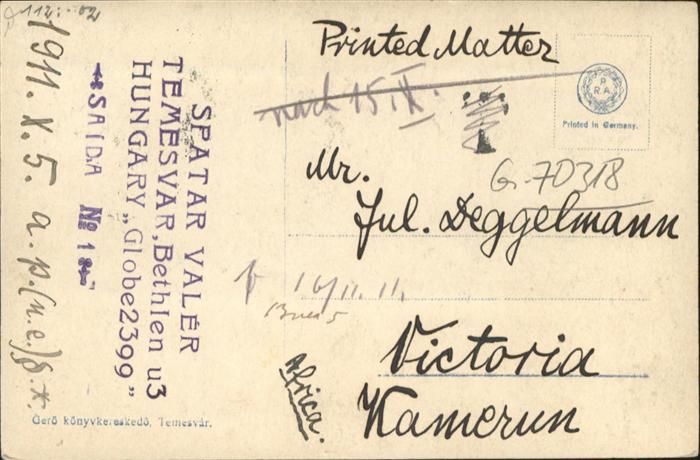 112: 02
Printed Matter
nach 15. X.
P.
R.A.
Printed in Germany.
Mr.
G. 70318
Jul. Deggelmann
16/11. 11.
Victoria
Africa.
Kamerun
SPATAR VALÉR
TEMESVAR, Bethlen u3
HUNGARY „Globe2399”
SAIDA № 18
1911. X. 5. a. p. (u.e.) g. x.
Gerő könyvkereskedő, Temesvár.